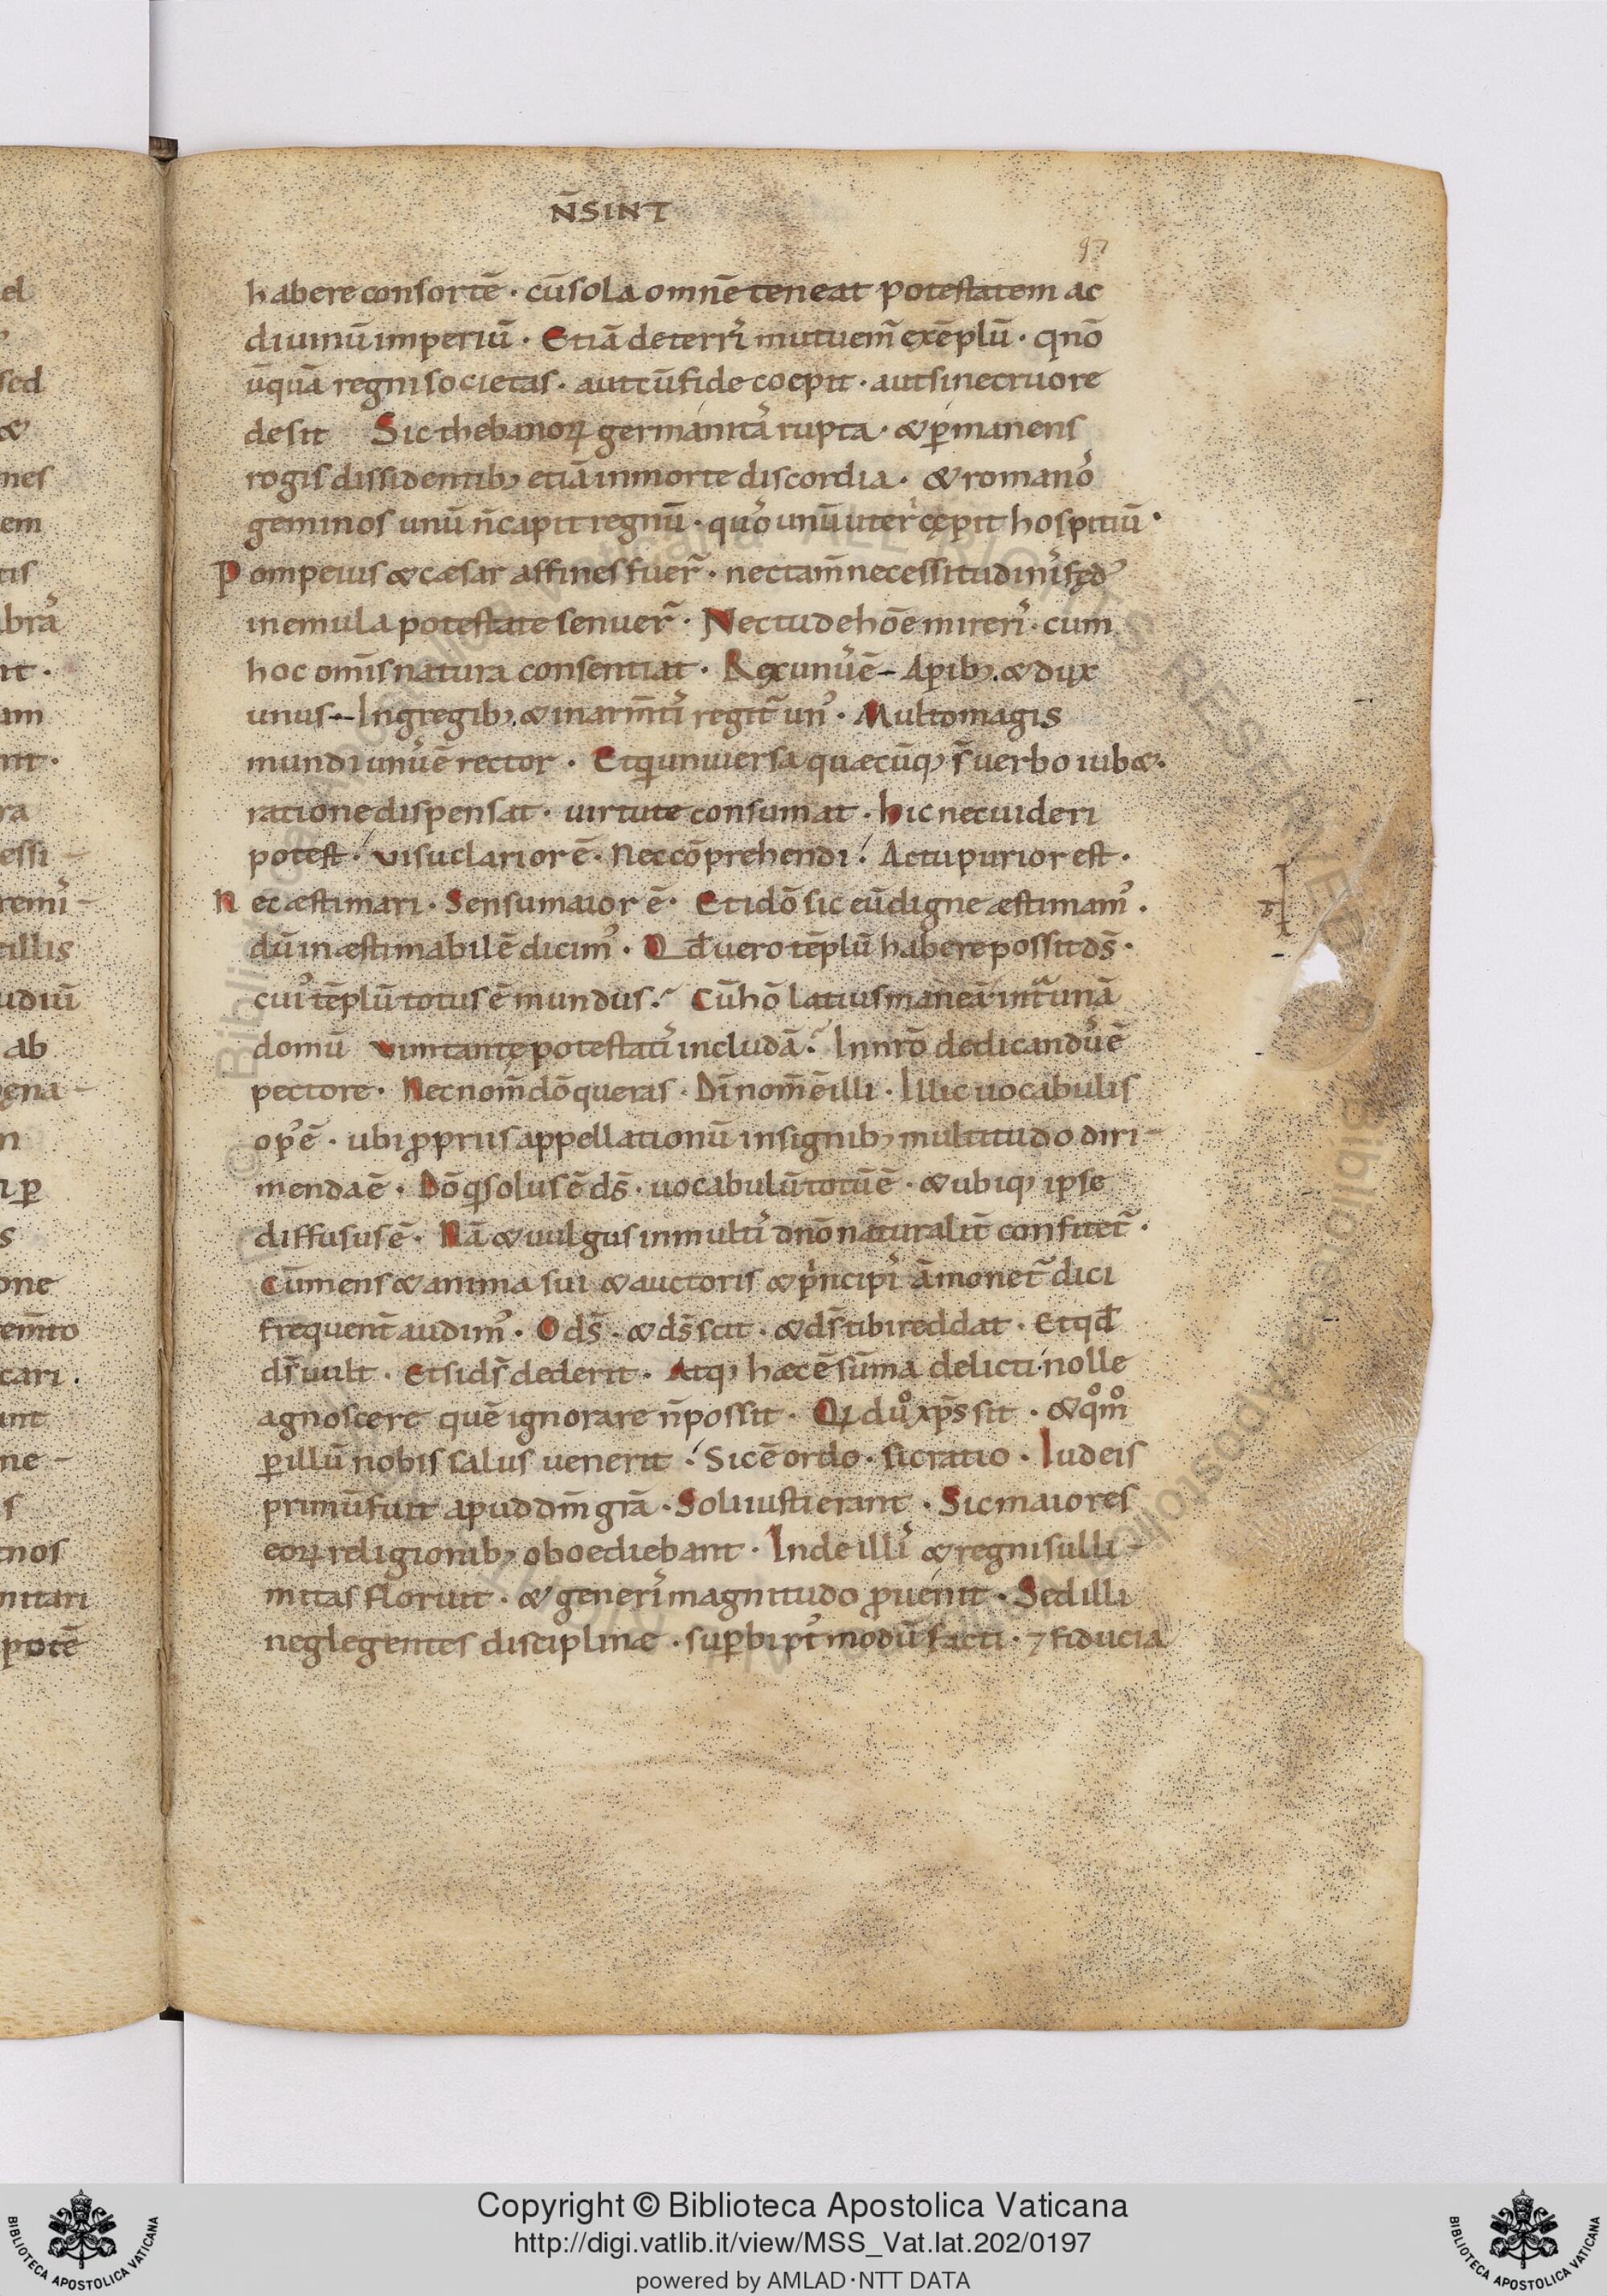 N̄SINT
97
habere consortē · cū sola omnē teneat potestatem ac
diuinū imperiū · Etiā de terris̉ mutuem̄ exēplū · qn̄o
ūquā regni societas · aut cū fide coepit · aut sine cruore
desit Sic thebanoꝝ germanitas̉ rupta · & ꝑmanens
rogis dissidentib; etiā in morte discordia · & romano̓s
geminos unū n̄ capit regnū · quo̓s unū uteri̓ cępit hospitiū ·
Pompeius & cæsar affines fuer̄ · nec tam̄ necessitudinis̉ fęd᷒
in emula potestate senuer̄ · Nec tu de hōe mireris̉ · cum
hoc omīs natura consentiat · Rex unus̉ ē – Apib; · & dux
unus – In gregib; · & in arm̄tis̉ regit᷒ un᷒ · Multo magis
mundi unus̉ ē rector · Et q̄ uniuersa quæcūq; s̄ uerbo iub& ·
ratione dispensat · uirtute consumat · hic nec uideri
potest · uisu clarior ē · Nec cōprehendi · Actu purior est ·
Nec æstimari · Sensu maior ē · Et idō sic eū digne æstimam᷒ ·
dū inæstimabilē dicim᷒ · Qd̄ uero tēplū habere possit ds̄ ·
cui᷒ tēplū totus ē mundus · Cū hō latius maneā intᷓ unā
domū uim tantę potestatis̉ includā · In nr̄o dedicandus̉ ē
pectore · Nec nom̄ dō queras · Dī nom̄ ē illi · Illic uocabulis
op᷒ ē · ubi ꝓpriis appellationū insignib; multitudo diri–
menda ē · Dō q̄ solus ē ds̄ · uocabulū totū ē · & ubiq; ipse
diffusus ē · Nā & uulgus in multis̉ dn̄o naturalit̄ confitet᷒ ·
Cū mens & anima sui & auctoris & pⁱncipis̉ āmonet᷒ dici
frequent̄ audim᷒ · O ds̄ · & ds̄ scit · & ds̄ tibi reddat · Et qd̄
ds̄ uult · Et si ds̄ dederit · Atq; hæc ē sūma delicti nolle
agnoscere quē ignorare n̄ possit · Qꝫ du᷒ xp̄s sit · & qᵒmᵒ
ꝑ illū nobis salus uenerit · Sic ē ordo · sic ratio · Iudeis
primū fuit apud dm̄ grā · Soli iusti erant · Sic maiores
eoꝝ religionib; oboediebant · Inde illis̉ & regni sulli–
mitas floruit · & generis̉ magnitudo ꝓuenit · Sed illi
neglegentes disciplinæ · suꝑbi p᷒t modū facti · ⁊ fiducia
Copyright © Biblioteca Apostolica Vaticana
http://digi.vatlib.it/view/MSS_Vat.lat.202/0197
powered by AMLAD·NTT DATA